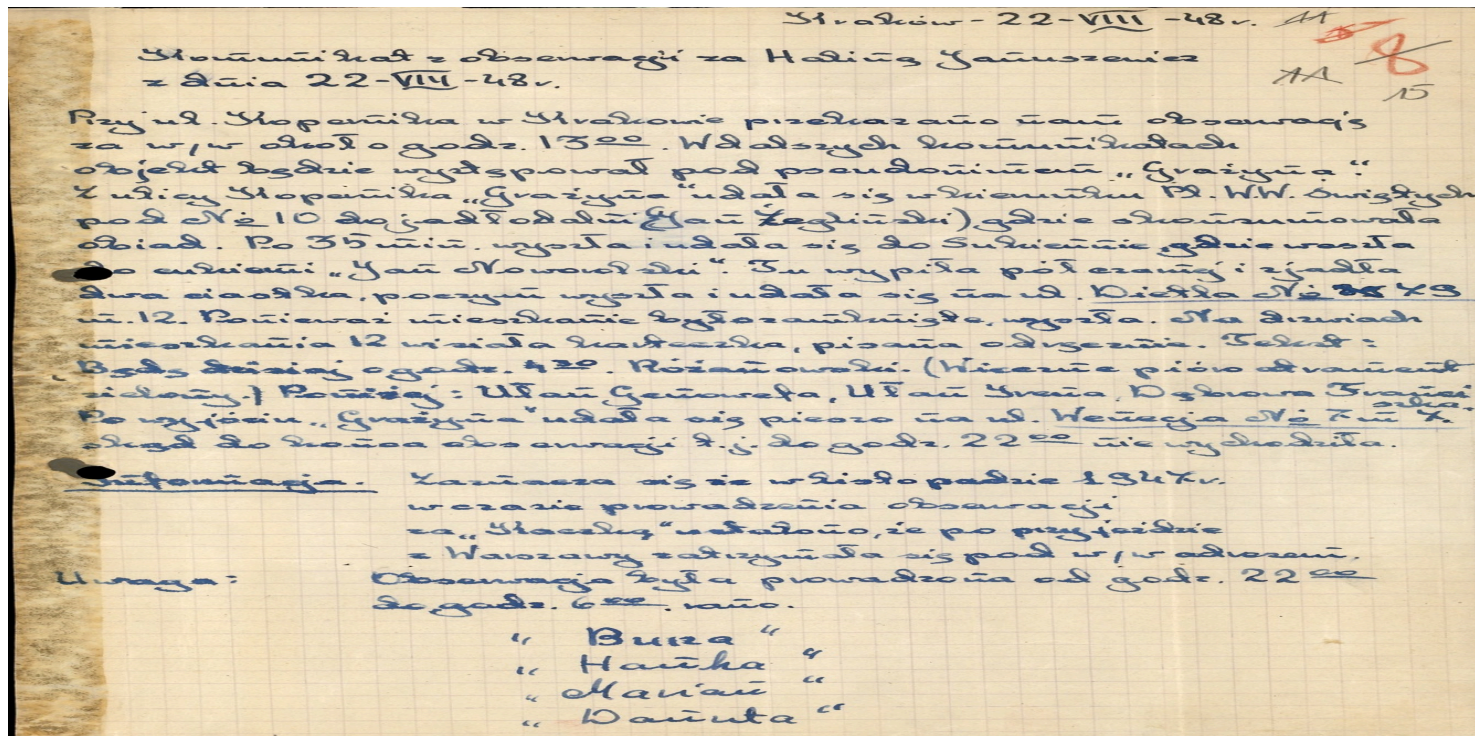 Kraków - 22-VIII-48r. 11
8
Komunikat z obserwacji za Haliną Januszewicz 11
z dnia 22-VIII-48r. 15
Przy ul. Kopernika w Krakowie przekazano nam obserwację
za w/w około godz. 13 00. W dalszych komunikatach
objekt będzie występował pod pseudonimem „Grażyna".
Z ulicy Kopernika „Grażyna" udała się w kierunku Pl. W.W. Świętych
pod № 10 do jadłodalni (Jan Żegliński) gdzie skonsumowała
obiad. Po 35 min. wyszła i udała się do Sukiennic, gdzie weszła
do cukierni „Jan Noworolski". Tu wypiła pół czarnej i zjadła
dwa ciastka, poczym wyszła i udała się na ul. Dietla № 79
m. 12. Ponieważ mieszkanie było zamknięte, wyszła. Na drzwiach
mieszkania 12 wisiała karteczka, pisana odręcznie. Tekst:
Będę dzisiaj o godz. 4 30. Różanowski. (Wieczne pióro atrament
zielony.) Poniżej: Ułan Genowefa, Ułan Irena, Dąbrowa Franci
szka.
Po wyjściu „Grażyna" udała się pieszo na ul. Wenecja № 7 m 7.
skąd do końca obserwacji t.j. do godz. 22 00 nie wychodziła.
Informacja. Zaznacza się że w listopadzie 1947r.
w czasie prowadzenia obserwacji
za „Kaczką" ustalono, że po przyjeździe
z Warszawy zatrzymała się pod w/w adresem.
Uwaga: Obserwacja była prowadzona od godz. 22 00
do godz. 6 00. rano.
„ Burza "
„ Hanka "
„ Marian "
„ Danuta "